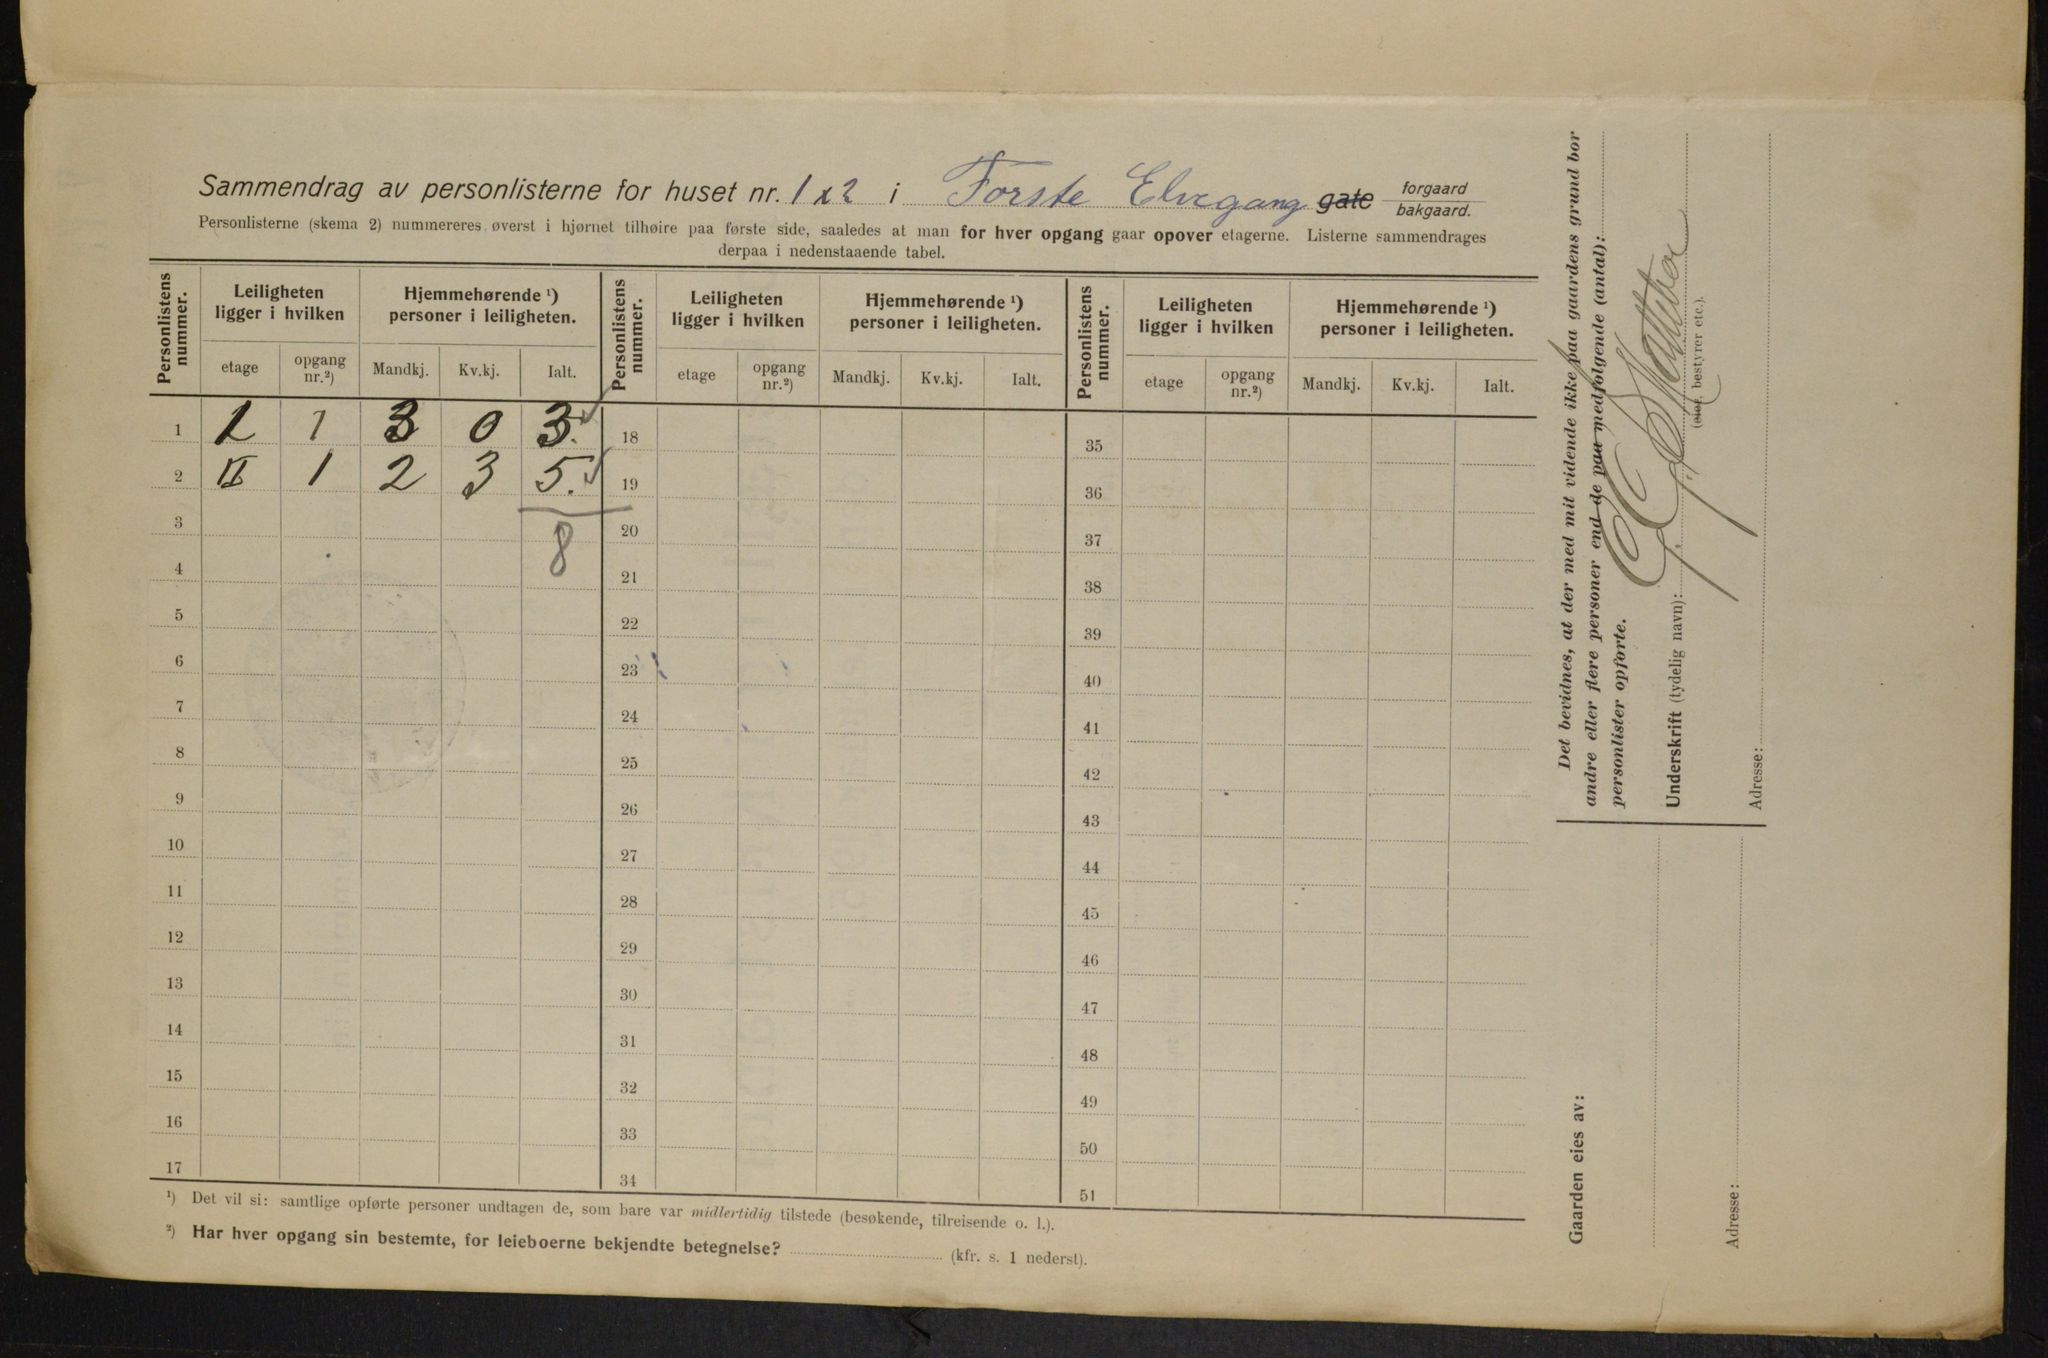 Sammendrag av personlisterne for huset nr. 1 x 2 i Forste Elvegang gate forgaard bakgaard.
Personlisterne (skema 2) nummereres øverst i hjørnet tilhøire paa første side, saaledes at man for hver opgang gaar opover etagerne. Listerne sammendrages
derpaa i nedenstaaende tabel.
Personlistens nummer. Leiligheten ligger i hvilken Hjemmehørende ¹) personer i leiligheten. Personlistens nummer. Leiligheten ligger i hvilken Hjemmehørende ¹) personer i leiligheten. Personlistens nummer. Leiligheten ligger i hvilken Hjemmehørende ¹) personer i leiligheten.
etage opgang nr.²) Mandkj. Kv.kj. Ialt. etage opgang nr.²) Mandkj. Kv.kj. Ialt. etage opgang nr.²) Mandkj. Kv.kj. Ialt.
1 I 1 3 0 3. 18 35
2 II 1 2 3 5. 19 36
3 8 20 37
4 21 38
5 22 39
6 23 40
7 24 41
8 25 42
9 26 43
10 27 44
11 28 45
12 29 46
13 30 47
14 31 48
15 32 49
16 33 50
17 34 51
¹) Det vil si: samtlige opførte personer undtagen de, som bare var midlertidig tilstede (besøkende, tilreisende o. l.).
²) Har hver opgang sin bestemte, for leieboerne bekjendte betegnelse? (kfr. s. 1 nederst).
Det bevidnes, at der med mit vidende ikke paa gaardens grund bor
andre eller flere personer end de paa medfølgende (antal):
personlister opførte.
Underskrift (tydelig navn):
(eier, bestyrer etc.).
Adresse:
Gaarden eies av:
Adresse: